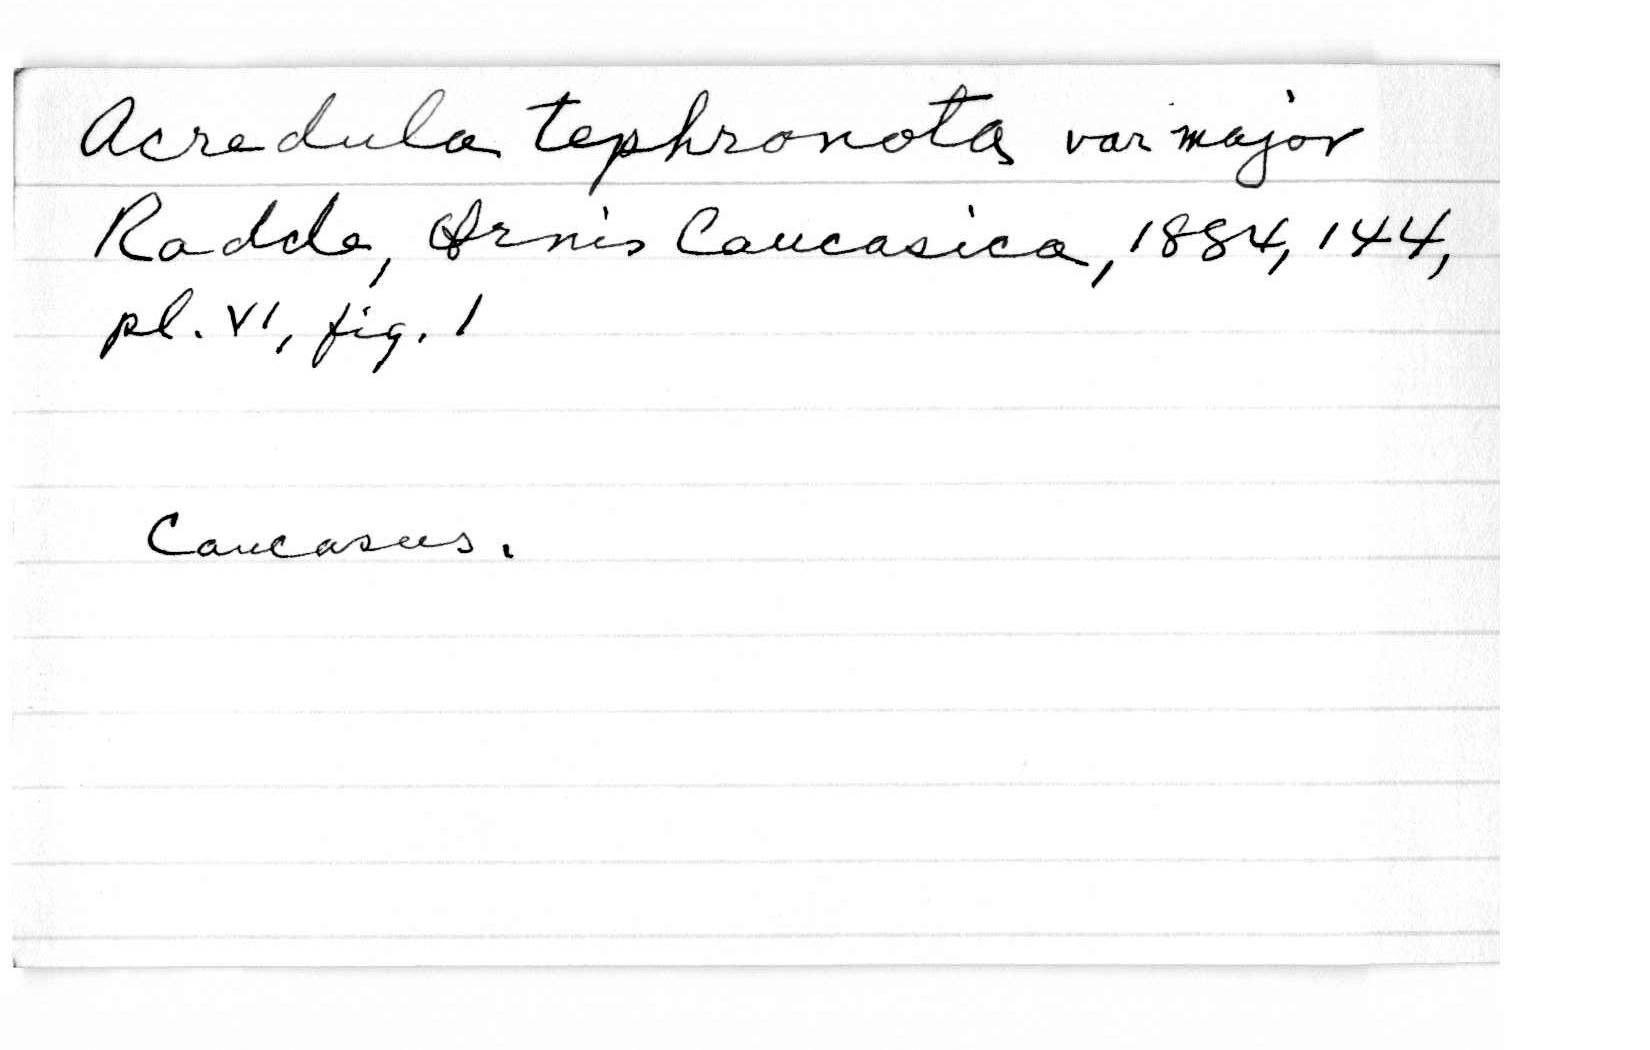 Acredula tephronota var major
Radde, Ornis Caucasica, 1884, 144,
pl. VI, fig. 1
Caucasus.